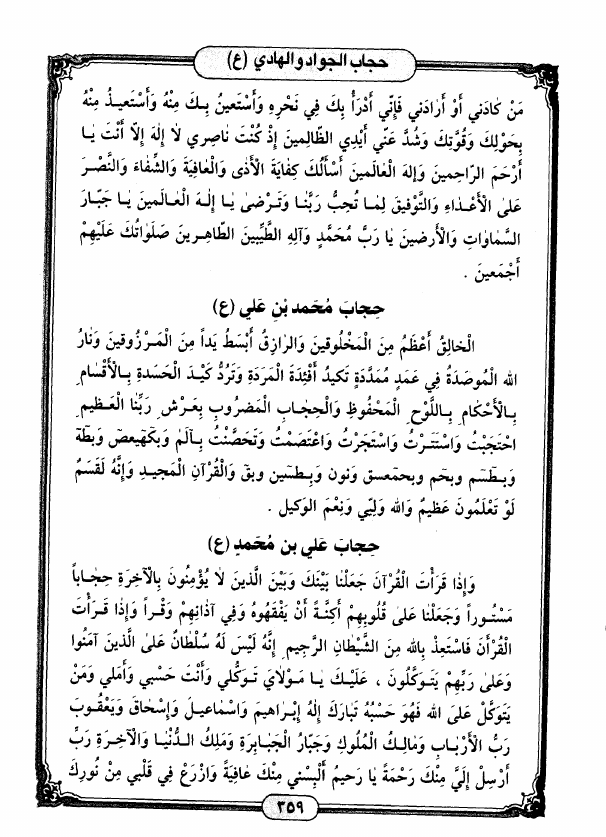 حجاب الجواد والهادي (ع)
مَن كٰادَني أَوْ أَرٰادَني فَإِنّي أَدْرَأُ بِكَ فِي نَحْرِهِ وَأَسْتَعينُ بِكَ مِنْهُ وَأَسْتَعيذُ مِنْهُ
بِحَوْلِكَ وَقُوَّتِكَ وَشُدَّ عَنّي أَيْدِي الظّالِمينَ إِذْ كُنْتَ نٰاصِري لاٰ إِلٰهَ إِلاّ أَنْتَ يٰا
أَرْحَمَ الرّاحِمينَ وَإِلٰهَ الْعٰالَمينَ أَسْأَلُكَ كِفٰايَةَ الْأَذىٰ وَالْعٰافِيَةَ وَالشِّفٰاءَ وَالنَّصْرَ
عَلىٰ الْأَعْدٰاءِ وَالتَّوْفيقَ لِمٰا تُحِبُّ رَبَّنٰا وَتَرْضىٰ يٰا إِلٰهَ الْعٰالَمينَ يٰا جَبّارَ
السَّمٰاوٰاتِ وَالْأَرَضينَ يٰا رَبَّ مُحَمَّدٍ وَآلِهِ الطَّيِّبينَ الطّاهِرينَ صَلَوٰاتُكَ عَلَيْهِمْ
أَجْمَعينَ .
حجاب مُحَمد بْنِ عَلي (ع)
الْخالِقُ أَعْظَمُ مِنَ الْمَخْلُوقينَ وَالرّٰازِقُ أَبْسَطُ يَداً مِنَ الْمَرْزُوقينَ وَنٰارُ
الله الْمُوصَدَةُ في عَمَدٍ مُمَدَّدَةٍ تَكيدُ أَفْئِدَةَ الْمَرَدَةِ وَتَرُدُّ كَيْدَ الْحَسَدَةِ بِالْأَقْسٰامِ
بِالْأَحْكٰامِ بِاللَّوْحِ الْمَحْفُوظِ وَالْحِجٰابِ الْمَضْرُوبِ بِعَرْشِ رَبِّنٰا الْعَظيمِ
احْتَجَبْتُ وَاسْتَتَرْتُ وَاسْتَجَرْتُ وَاعْتَصَمْتُ وَتَحَصَّنْتُ بِآلم وَبكهيعص وَبطٰه
وَبطسم وبحم وبحمعسق ونون وبطسين وبق وَالْقُرْآنِ الْمَجيدِ وَإِنَّهُ لَقَسَمٌ
لَوْ تَعْلَمُونَ عَظيمٌ وَالله وَلِيّي وَنِعْمَ الْوَكيل .
حجاب عَلي بن مُحَمدٍ (ع)
وَإِذٰا قَرَأْتَ الْقُرْآنَ جَعَلْنٰا بَيْنَكَ وَبَيْنَ الَّذينَ لاٰ يُؤْمِنُونَ بِالْآخِرَةِ حِجٰاباً
مَسْتُوراً وَجَعَلْنٰا عَلىٰ قُلُوبِهِمْ أَكِنَّةً أَنْ يَفْقَهُوهُ وَفي آذٰانِهِمْ وَقْراً وَإِذٰا قَرَأْتَ
الْقُرْآنَ فَاسْتَعِذْ بِالله مِنَ الشَّيْطٰانِ الرَّجيمِ إِنَّهُ لَيْسَ لَهُ سُلْطٰانٌ عَلىٰ الَّذينَ آمَنُوا
وَعَلىٰ رَبِّهِمْ يَتَوَكَّلُونَ ، عَلَيْكَ يٰا مَوْلاٰيَ تَوَكُّلي وَأَنْتَ حَسْبي وَأَمَلي وَمَنْ
يَتَوَكَّلْ عَلىٰ الله فَهُوَ حَسْبُهُ تَبٰارَكَ إِلٰهُ إِبْرٰاهيمَ وَاسْمٰاعيلَ وَإِسْحٰاقَ وَيَعْقُوبَ
رَبُّ الْأَرْبٰابِ وَمٰالِكُ الْمُلُوكِ وَجَبّارُ الْجَبٰابِرَةِ وَمَلِكُ الدُّنْيٰا وَالْآخِرَةِ رَبِّ
أَرْسِلْ إِلَيَّ مِنْكَ رَحْمَةً يٰا رَحيمُ أَلْبِسْني مِنْكَ عٰافِيَةً وَازْرَعْ في قَلْبي مِنْ نُورِكَ
٣٥٩